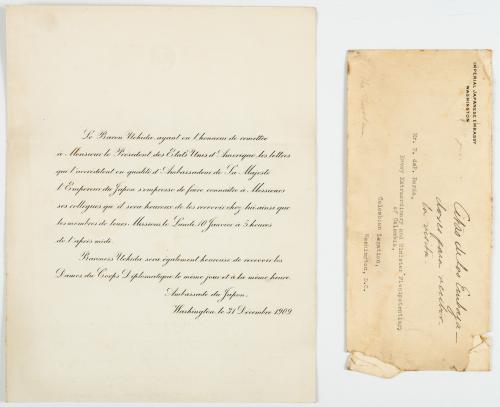 Le Baron Uchida, ayant eu l'honneur de remettre
à Monsieur le Président des Etats Unis d'Amérique les lettres
qui l'accréditent en qualité d'Ambassadeur de Sa Majesté
l'Empereur du Japon s'empresse de faire connaître à Messieurs
ses collègues qu'il sera heureux de les recevoir chez lui ainsi que
les membres de leurs Missions, le Lundi 10 Janvier à 5 heures
de l'après midi.
Baroness Uchida sera également heureuse de recevoir les
Dames du Corps Diplomatique le même jour et à la même heure.
Ambassade du Japon.
Washington le 31 Décembre 1909
IMPERIAL JAPANESE EMBASSY
WASHINGTON
Mr. F. deP. Borda,
Envoy Extraordinary and Minister Plenipotentiary
of Colombia,
Colombian Legation,
Washington, D.C.
de los Embaja-
dores para recibir
la visita